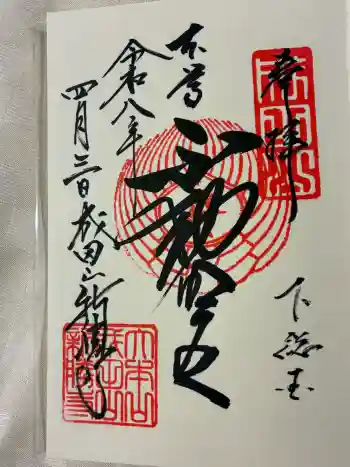 奉拝
下総国
本尊
不動明王
令和八年
四月三日 成田山新勝寺